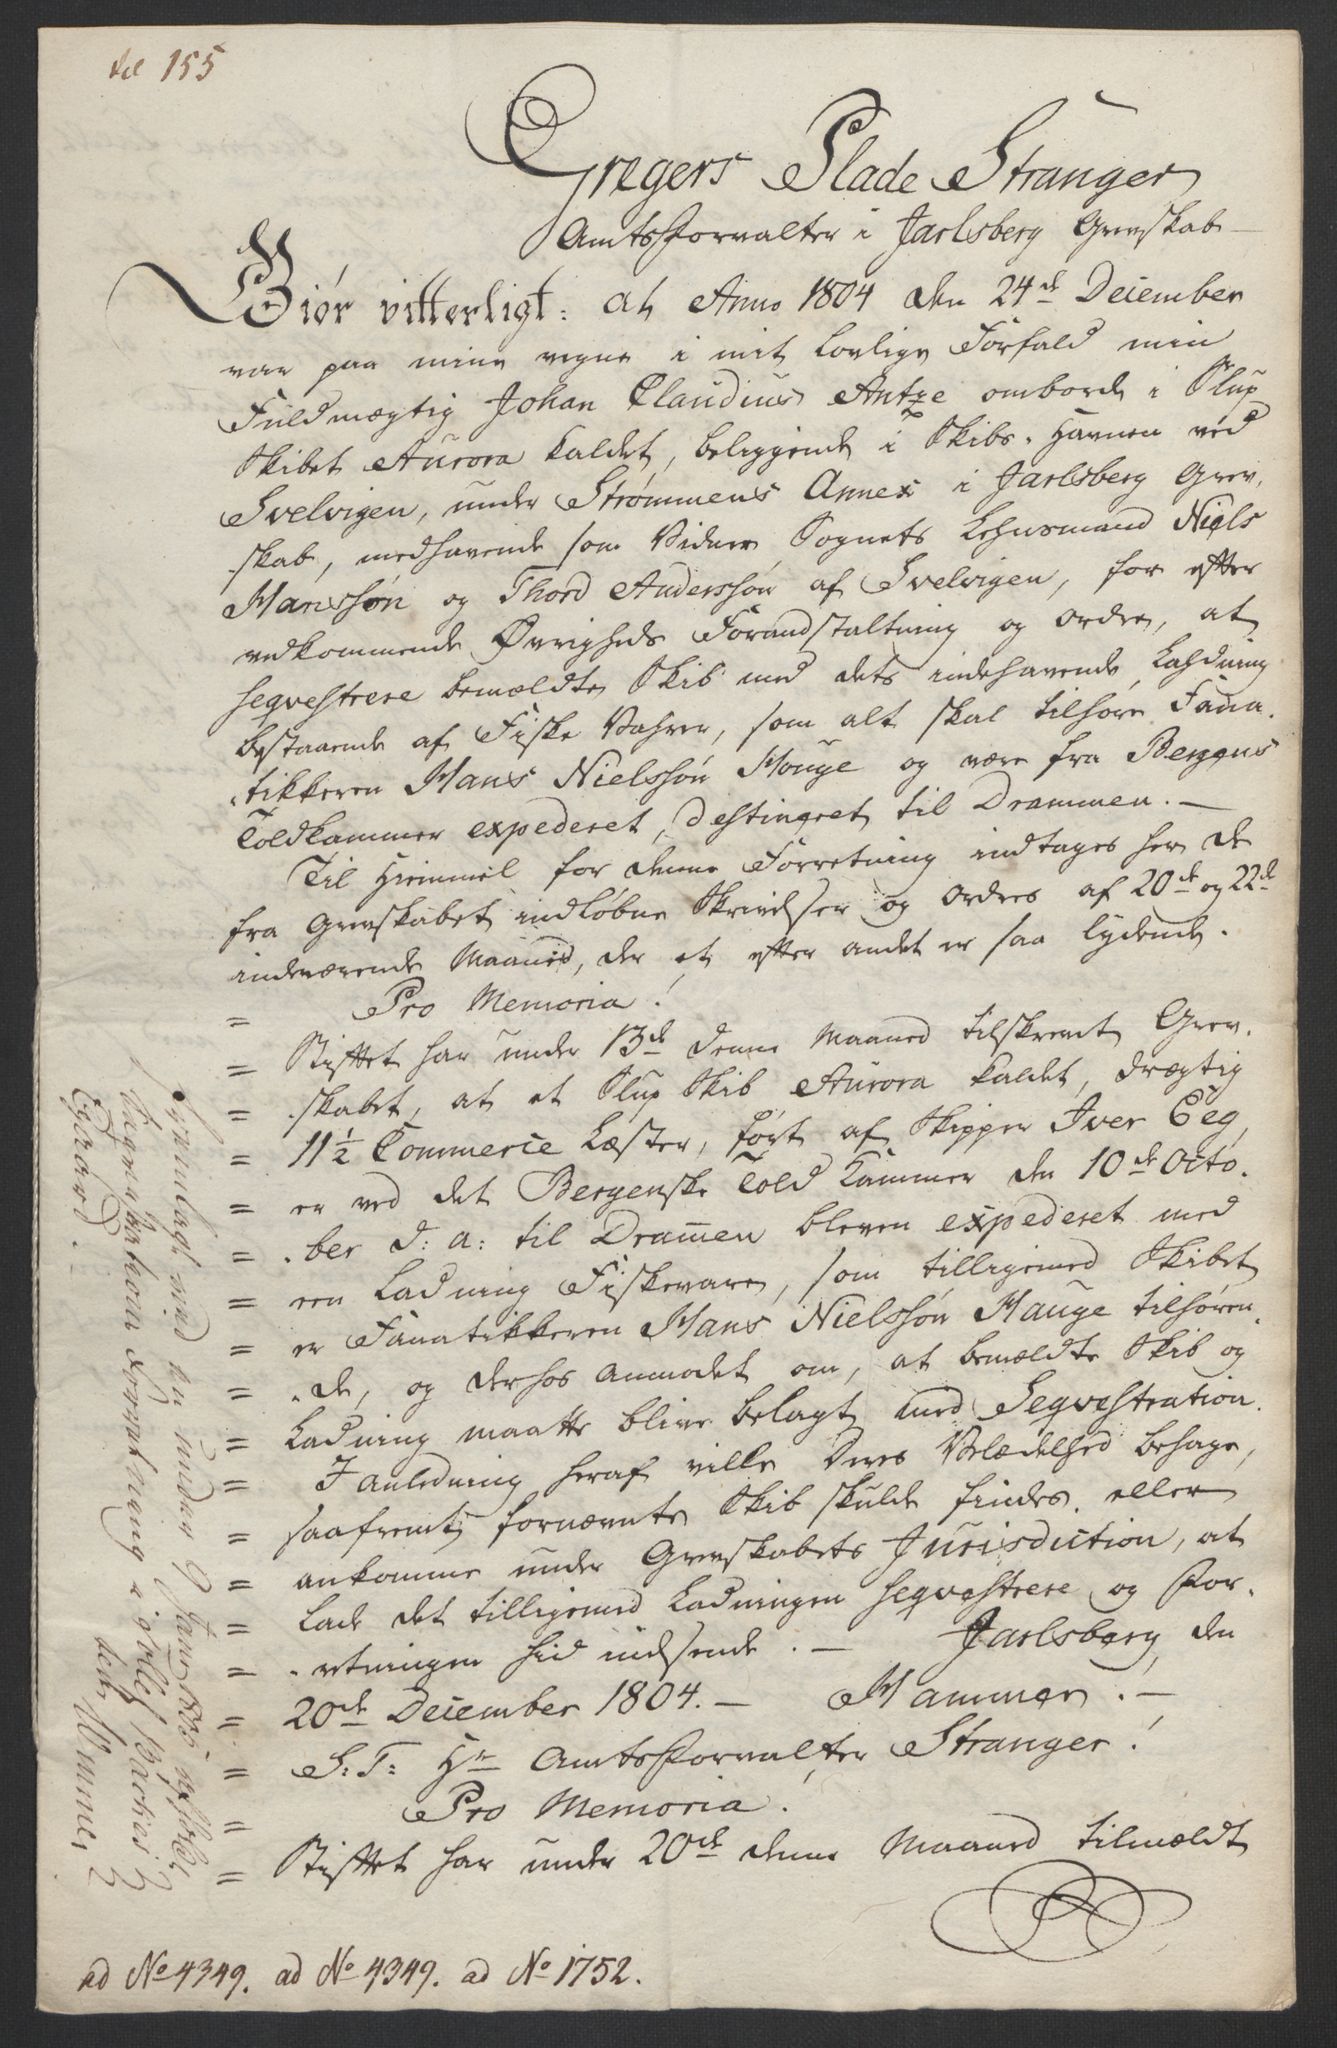 til 155
Gregers Slade Stranger
Amtsforvalter i Jarlsberg Grevskab
Giør vitterligt: at Anno 1804 den 24de December
var paa mine vegne i mit lovlige Forfald min
Fuldmægtig Johan Claudius Antze ombord i Slup
Skibet Aurora kaldet, beliggende i Skibs-Havnen ved
Svelvigen, under Strømmens Annex i Jarlsberg Grev,
skab, medhavende som Vidner Sognets Lehnsmand Niels
Hanssøn og Thord Anderssøn af Svelvigen, for efter
vedkommende Øvrigheds Foranstaltning og ordre, at
seqvestrere bemældte Skib med dets indehavende Lahdning
bestaaende af Fiske Vahrer, som alt skal tilhøre Fana,
tikkeren Hans Nielssøn Houge og være fra Bergens
Toldkammer expederet, destineret til Drammen. —
Til Hiemmel for denne Forretning indtages her de
fra Grevskabet indløbne Skrivelser og Ordres af 20de og 22de
indeværende Maaned, der et efter andet er saa lydende.
= Pro Memoria!
= Stiftet har under 13de denne Maaned tilskrevet Grev.
= .skabet, at et Slup Skib Aurora kaldet, drægtig
= 11½ Commerce Læster, ført af Skipper Iver Eeg,
= er ved det Bergenske Told Kammer den 10de Octo.
= .ber d: a: til Dramen bleven expederet med
= een Ladning Fiskevare, som tilligemed Skibet
= er Fanatikkeren Hans Nielssøn Hauge tilhøren.
= .de, og derhos anmodet om, at bemældte Skib og
= Ladning maatte blive belagt med Seqvestration.
= I anledning heraf ville Deres Velædelhed behage,
= saafremt fornævnte Skib skulde findes eller
= ankomme under Grevskabets Jurisdiction, at
= lade det tilligemed Ladningen seqvestrere og For.
= .retningen hid indsende. — Jarlsberg den
= 20de December 1804. — Hammer. —
= S: T: Hr Amtsforvalter Stranger!
= Pro Memoria.
= Stiftet har under 20de denne Maaned tilmældt
Fremlagt ved en under 9 Janv. 1805
Seqvestrations Forretning
ad No 4349. ad No 4349. ad No 1752.